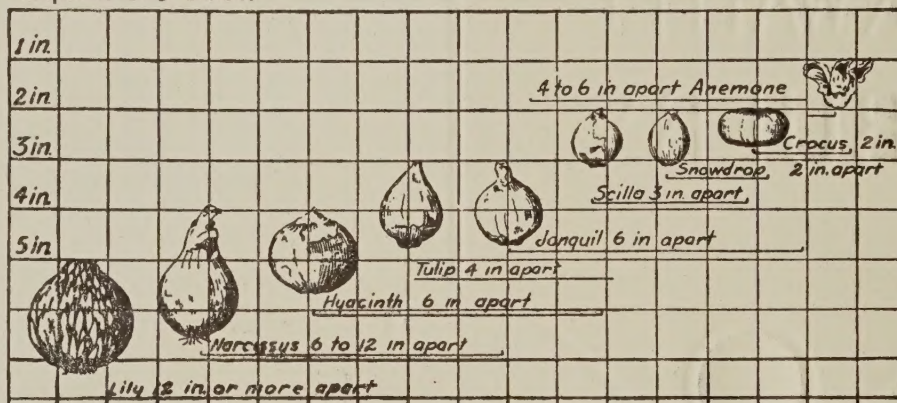 1 in.
2 in.
4 to 6 in apart Anemone
3 in.
Crocus, 2 in.
Snowdrop, 2 in. apart
Scilla 3 in. apart
4 in.
5 in.
Jonquil 6 in apart
Tulip 4 in apart
Hyacinth 6 in apart
Narcissus 6 to 12 in apart
Lily 12 in. or more apart